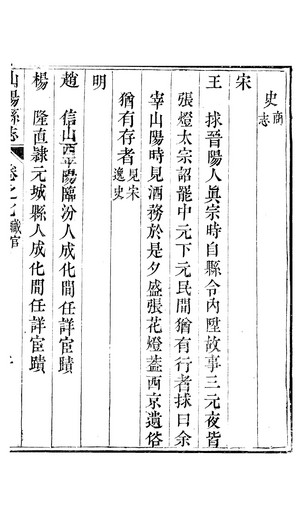 史商
志
宋
王　採晉陽人眞宗時自縣令內陞故事三元夜皆
張燈太宗詔罷中元下元民間猶有行者採曰余
宰山陽時見酒務於是夕盛張花燈蓋西京遺俗
猶有存者見宋
逸史
明
趙　信山西平陽臨汾人成化間任詳宦蹟
楊　隆直隸元城縣人成化間任詳宦蹟
山陽縣志　卷之七　職官